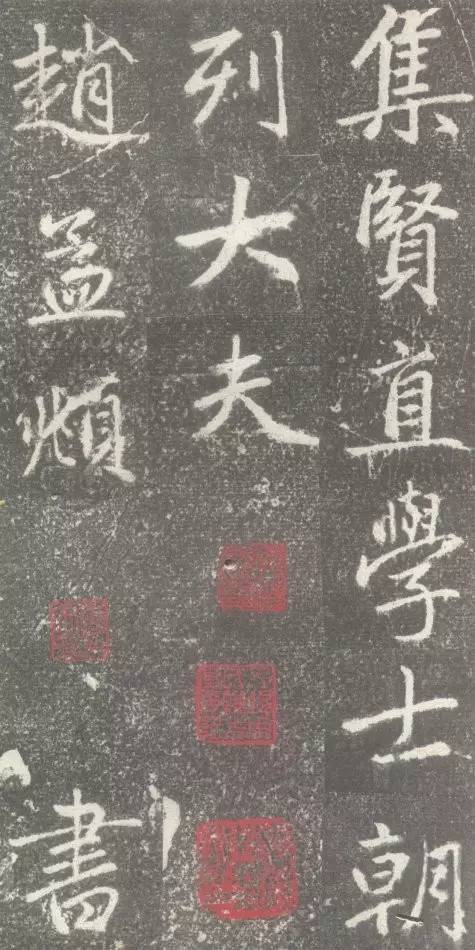 集賢直學士朝
列大夫
趙孟頫
書